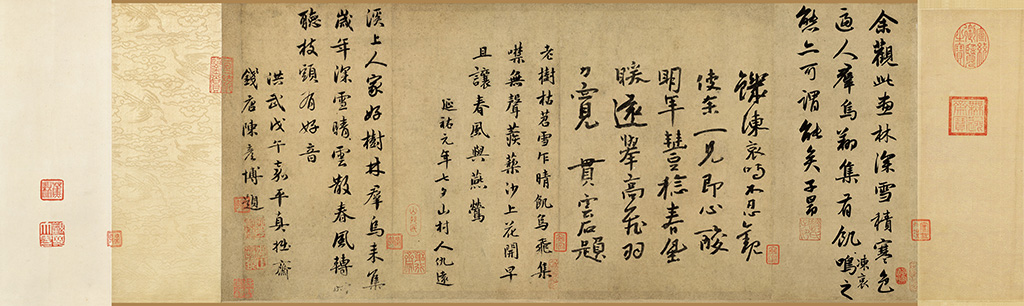 余觀此畫林深雪積寒色
逼人羣烏翔集有飢凍哀鳴之
態亦可謂能矣子昂
饑凍哀鳴不忍觀
使余一見即心酸
明年豐稔春塘
暖遠舉高飛羽
力寬 貫雲石題
老樹枯苕雪乍晴飢烏飛集
噤無聲蒺藜沙上花開早
且讓春風與燕鶯
延祐元年七夕山村人仇遠
溪上人家好樹林羣烏来集
歲年深雪晴雲散春風轉
聽枝頭有好音
洪武戊午嘉平真拙齋
錢唐陳彥博題